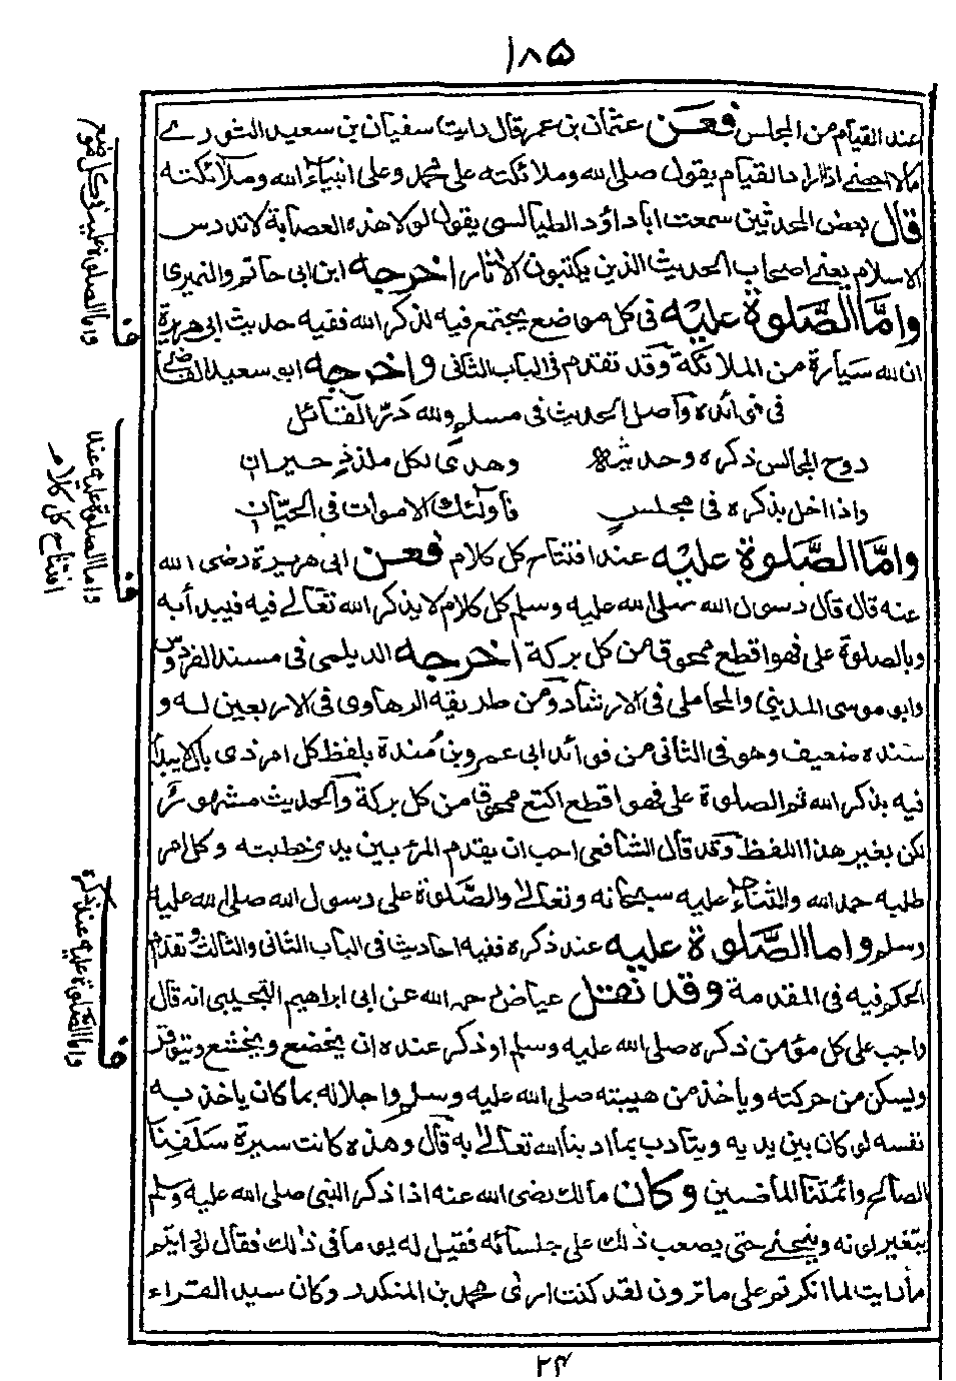 ١٨٥
عند القيام من المجلس فعن عثمان بن عمر قال رايت سفيان بن سعيد الثوري
مالا احصي اذا اراد القيام يقول صلى الله وملائكته على محمد وعلى انبياء الله وملائكته
قال بعض المحدثين سمعت ابا داؤد الطيالسي يقول لولا هذه العصابة لاندرس
الاسلام يعني اصحاب الحديث الذين يكتبون الأثار اخرجه ابن ابى حاتم والنميرى
وامّا الصّلوة عليه فى كل مواضع يجتمع فيه لذكر الله ففيه حديث ابى هريرة
ان لله سيارة من الملائكة وقد تقدم فى الباب الثانى واخرجه ابو سعيد القاضى
فى فوائده وأصل الحديث فى مسلم ولله درّ القائل
روح المجالس ذكره وحديثه وهدى لكل ملذذ حيران
واذا اخل بذكره فى مجلس فأولئك الاموات فى الحيّان
وامّا الصّلوة عليه عند افتتاح كل كلام فعن ابى هريرة رضى الله
عنه قال قال رسول الله صلى الله عليه وسلم كل كلام لا يذكر الله تعالى فيه فيبدأ به
وبالصلوة على فهو اقطع ممحوق من كل بركة اخرجه الديلمى فى مسند الفردوس
وابو موسى المديني والمحاملى فى الارشاد ومن طريقه الرهاوى فى الاربعين له و
سنده ضعيف وهو فى الثانى من فوائد ابى عمرو بن مندة بلفظ كل امر ذى بال لا يبدأ
فيه بذكر الله ثم الصلوة على فهو اقطع اكتع ممحوق من كل بركة والحديث مشهور
لكن بغير هذا اللفظ وقد قال الشافعى احب ان يقدم المرء بين يدى خطبته وكل امر
طلبه حمد الله والثناء عليه سبحانه وتعالى والصّلوة على رسول الله صلى الله عليه
وسلم واما الصّلوة عليه عند ذكره ففيه احاديث فى الباب الثانى والثالث وتقدم
الحكم فيه فى المقدمة وقد نقل عياض رحمه الله عن ابى ابراهيم التجيبى انه قال
واجب على كل مؤمن ذكره صلى الله عليه وسلم او ذكر عنده ان يخضع ويخشع ويتوقر
ويسكن من حركته وياخذ من هيبته صلى الله عليه وسلم واجلاله بما كان ياخذ به
نفسه لو كان بين يديه ويتادب بما ادبنا الله تعالى به قال وهذه كانت سيرة سلفنا
الصالح وائمتنا الماضين وكان مالك رضى الله عنه اذا ذكر النبى صلى الله عليه وسلم
يتغير لونه وينحني حتى يصعب ذلك على جلسائه فقيل له يوما فى ذلك فقال لو رايتم
ما رايت لما انكرتم على ما ترون لقد كنت ارى محمد بن المنكدر وكان سيد القراء
ف واما الصلوة عليه فى كل موضع
ف واما الصلوة عليه عند افتتاح كل كلام
ف واما الصّلوة عليه عند ذكره
٢٤